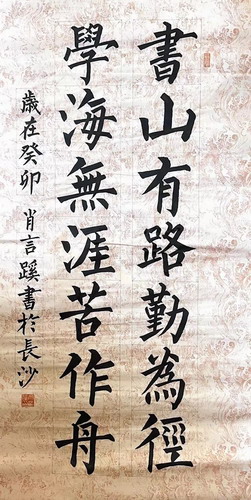 書山有路勤為徑
學海無涯苦作舟
歲在癸卯 肖言蹊書於長沙